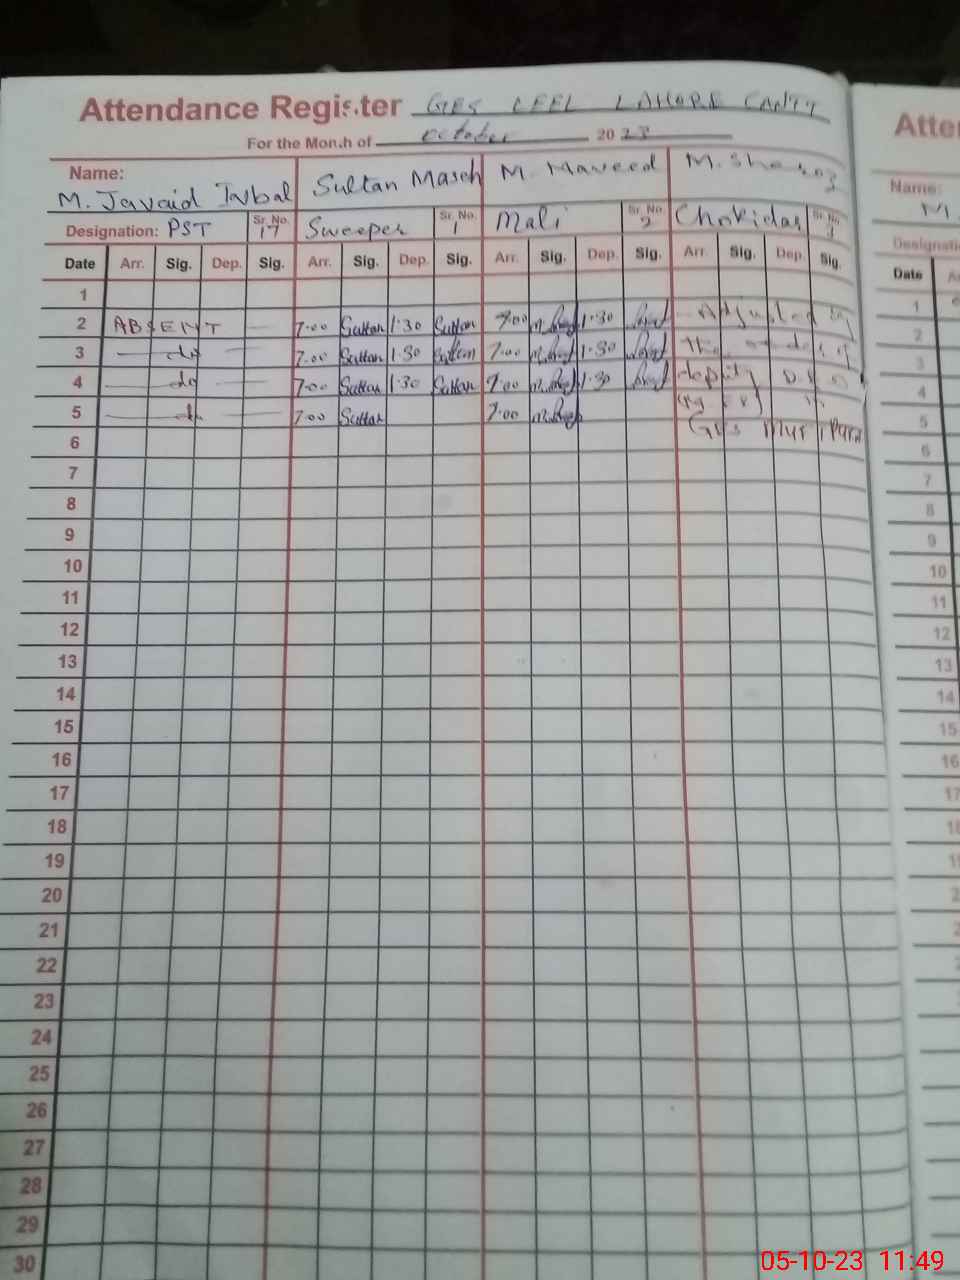 Attendance Register GES LEEL LAHORE CANTT
For the Month of October 2023
Name: M. Javaid Iqbal Sultan Maseh M. Naveed M. Sharoz
Designation: PST Sr. No. 17 Sweeper Sr. No. 1 Mali Sr. No. 2 Chokidar Sr. No. 3
Date Arr. Sig. Dep. Sig. Arr. Sig. Dep. Sig. Arr. Sig. Dep. Sig. Arr. Sig. Dep. Sig.
1
2 ABSENT 7:00 Sultan 1:30 Sultan 7:00 1:30 Adjusted by
3 do 7:00 Sultan 1:30 Sultan 7:00 1:30 The order of
4 do 7:00 Sultan 1:30 Sultan 7:00 1:30 deputy D.E.O
5 do 7:00 Sultan 7:00 in
6
7
8
9
10
11
12
13
14
15
16
17
18
19
20
21
22
23
24
25
26
27
28
29
30
Atte
Name:
M.
Designati
Date A
1
2
3
4
5
6
7
8
9
10
11
12
13
14
15
16
17
05-10-23 11:49